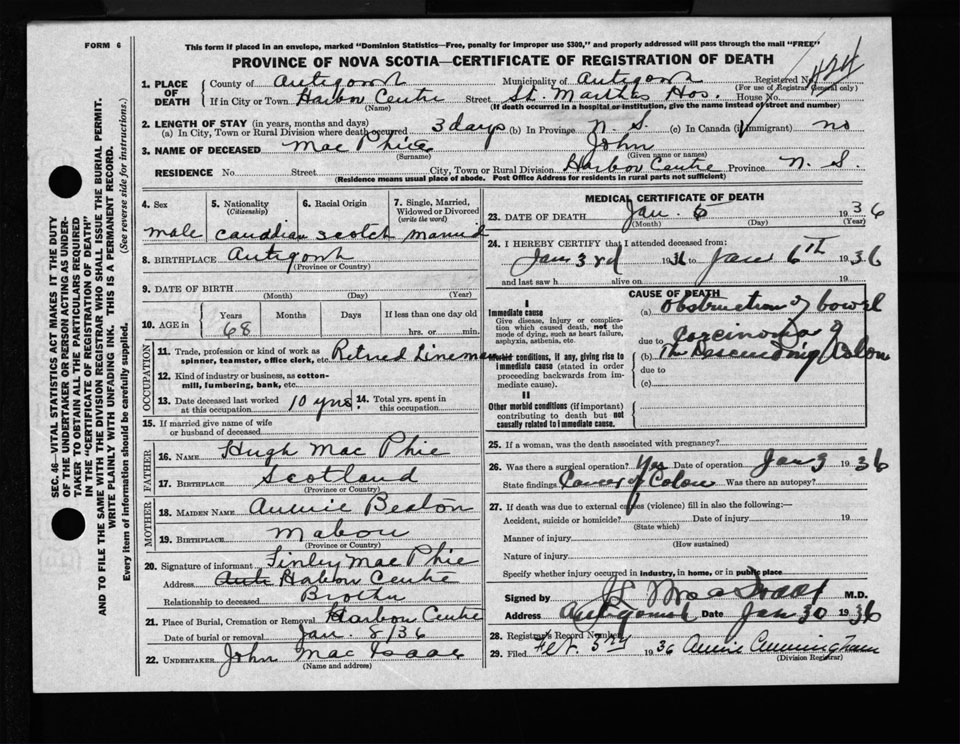 FORM 6
This form if placed in an envelope, marked "Dominion Statistics—Free, penalty for improper use $300," and properly addressed will pass through the mail "FREE"
PROVINCE OF NOVA SCOTIA—CERTIFICATE OF REGISTRATION OF DEATH
SEC. 46—VITAL STATISTICS ACT MAKES IT THE DUTY
OF THE UNDERTAKER OR PERSON ACTING AS UNDER-
TAKER TO OBTAIN ALL THE PARTICULARS REQUIRED
IN THE "CERTIFICATE OF REGISTRATION OF DEATH"
AND TO FILE THE SAME WITH THE DIVISION REGISTRAR WHO SHALL ISSUE THE BURIAL PERMIT.
WRITE PLAINLY WITH UNFADING INK. THIS IS A PERMANENT RECORD.
Every item of information should be carefully supplied. (See reverse side for instructions.)
1. PLACE OF DEATH County of Antigonish Municipality of Antigonish Registered No.
(For use of Registrar General only)
If in City or Town Harbor Centre Street St. Marthas Hos. House No.
(Name) (If death occurred in a hospital or institution, give the name instead of street and number)
2. LENGTH OF STAY (in years, months and days)
(a) In City, Town or Rural Division where death occurred 3 days (b) In Province N. S. (c) In Canada (if immigrant) no
3. NAME OF DECEASED Mac Phie John
(Surname) (Given name or names)
RESIDENCE No. Street City, Town or Rural Division Harbor Centre Province N. S.
(Residence means usual place of abode. Post Office Address for residents in rural parts not sufficient)
4. Sex 5. Nationality (Citizenship) 6. Racial Origin 7. Single, Married, Widowed or Divorced (write the word)
male Canadian Scotch Married
8. BIRTHPLACE Antigonish
(Province or Country)
9. DATE OF BIRTH
(Month) (Day) (Year)
10. AGE in Years Months Days If less than one day old
68 hrs. or min.
OCCUPATION
11. Trade, profession or kind of work as spinner, teamster, office clerk, etc. Retired Lineman
12. Kind of industry or business, as cotton-mill, lumbering, bank, etc.
13. Date deceased last worked at this occupation 10 yrs. 14. Total yrs. spent in this occupation
15. If married give name of wife or husband of deceased
FATHER
16. NAME Hugh Mac Phie
17. BIRTHPLACE Scotland
(Province or Country)
MOTHER
18. MAIDEN NAME Annie Beaton
19. BIRTHPLACE Mabou
(Province or Country)
20. Signature of informant Finley Mac Phie
Address Anti Harbor Centre
Relationship to deceased Brother
21. Place of Burial, Cremation or Removal Harbor Centre
Date of burial or removal Jan. 8/36
22. UNDERTAKER John Mac Isaac
(Name)
MEDICAL CERTIFICATE OF DEATH
23. DATE OF DEATH Jan. 6 1936
(Month) (Day) (Year)
24. I HEREBY CERTIFY that I attended deceased from:
Jan 3rd 1936 to Jan 6th 1936
and last saw h alive on 19
CAUSE OF DEATH
I
Immediate cause
Give disease, injury or complication which caused death, not the mode of dying, such as heart failure, asphyxia, asthenia, etc.
(a) Obstruction of bowel
due to Carcinoma of
Morbid conditions, if any, giving rise to immediate cause (stated in order proceeding backwards from immediate cause).
(b) The Descending Colon
due to
(c)
II
Other morbid conditions (if important) contributing to death but not causally related to immediate cause.
25. If a woman, was the death associated with pregnancy?
26. Was there a surgical operation? Yes Date of operation Jan 3 1936
State findings Cancer of Colon Was there an autopsy?
27. If death was due to external causes (violence) fill in also the following:—
Accident, suicide or homicide? Date of injury 19
(State which)
Manner of injury
(How sustained)
Nature of injury
Specify whether injury occurred in industry, in home, or in public place
Signed by M.D.
Address Antigonish Date Jan 30 1936
28. Registrar's Record Number
29. Filed Feb. 1936 Annie Cunningham
(Division Registrar)